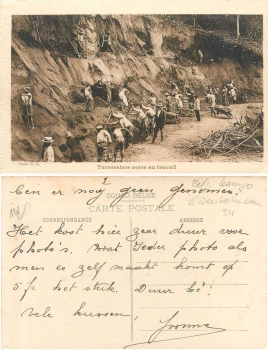 Terrassiers noirs au travail
Een er nog geen genomen.
CONGO BELGE
CARTE POSTALE
CORRESPONDANCE
ADRESSE
Het kost hier zeer duur voor
photo's. Want Ieder photo als
men ze zelf maakt komt op
5 f het stuk. Duur hé!
vele kussen
Yvonne